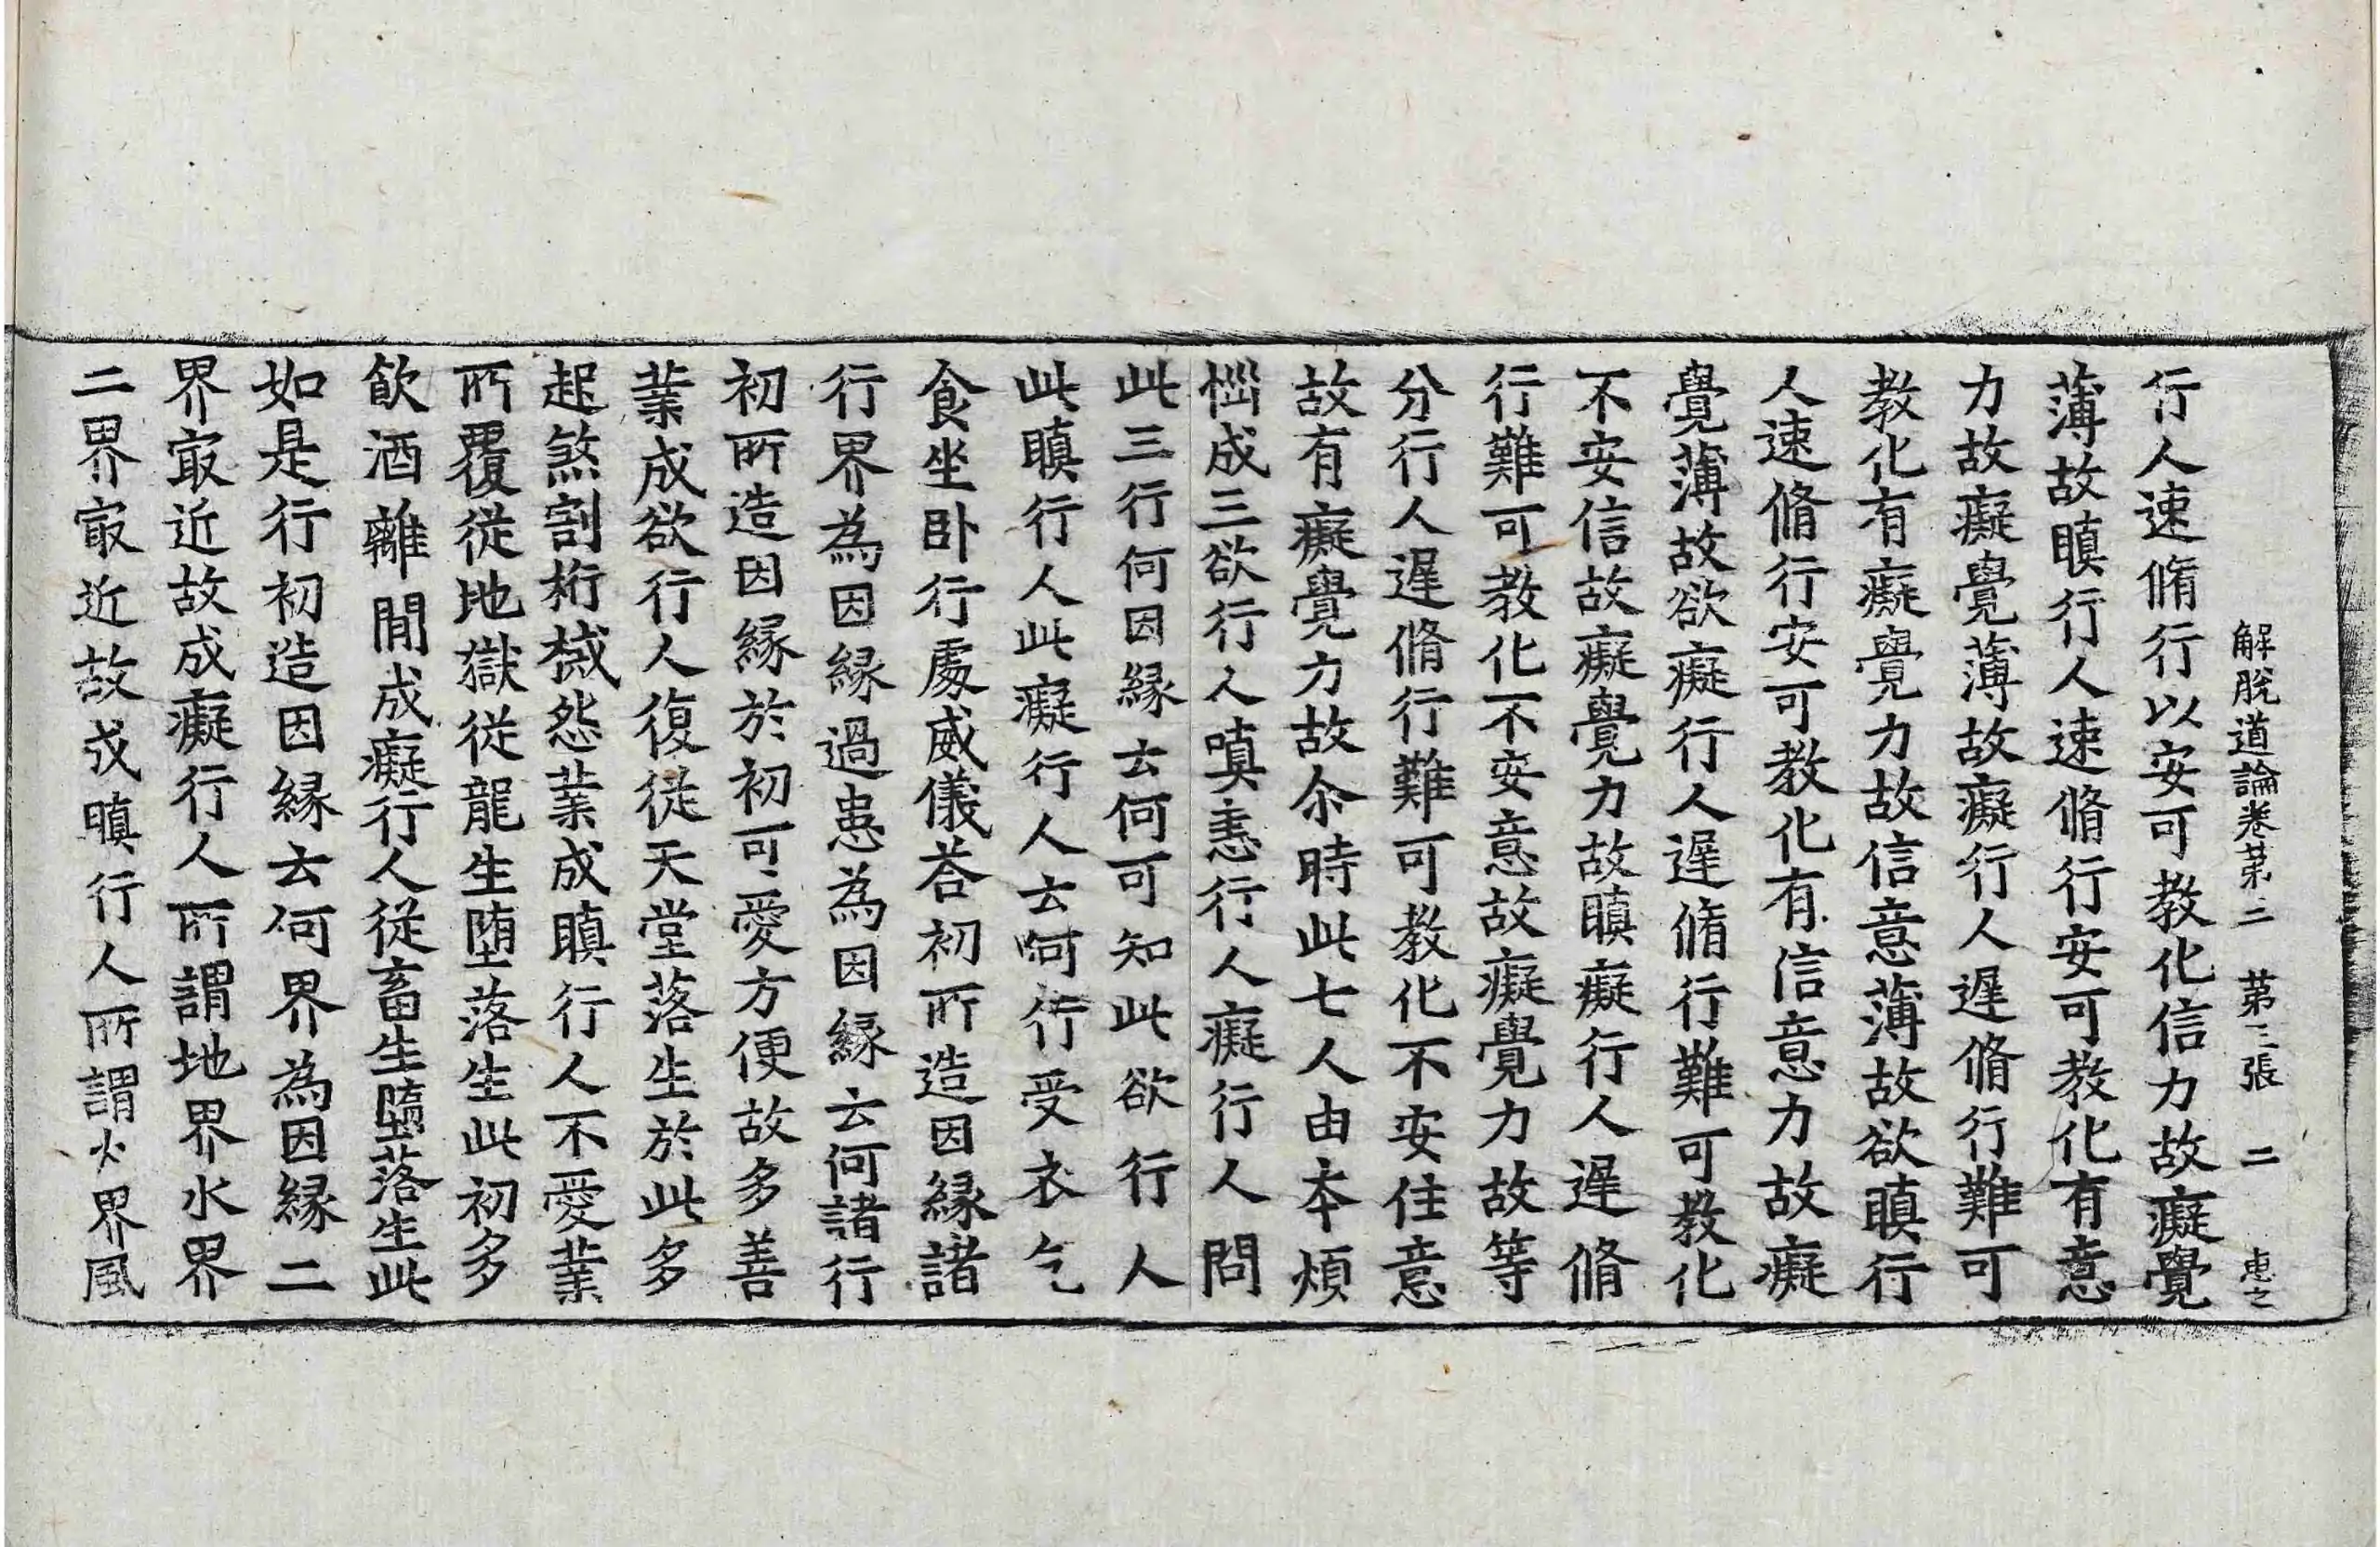 解脫道論卷第三　第三張　二　惠之
行人速脩行以安可教化信力故癡覺
薄故瞋行人速脩行安可教化有意
力故癡覺薄故癡行人遲脩行難可
教化有癡覺力故信意薄故欲瞋行
人速脩行安可教化有信意力故癡
覺薄故欲癡行人遲脩行難可教化
不安信故癡覺力故瞋癡行人遲脩
行難可教化不安意故癡覺力故等
分行人遲脩行難可教化不安住意
故有癡覺力故尒時此七人由本煩
惱成三欲行人嗔恚行人癡行人問
此三行何因縁云何可知此欲行人
此瞋行人此癡行人云何行受衣乞
食坐卧行處威儀荅初所造因縁諸
行界為因縁過患為因縁云何諸行
初所造因縁於初可愛方便故多善
業成欲行人復從天堂落生於此多
起煞割桁械怨業成瞋行人不愛業
所覆從地獄從龍生堕落生此初多
飲酒離間成癡行人從畜生堕落生此
如是行初造因縁云何界為因縁二
界㝡近故成癡行人所謂地界水界
二界㝡近故成瞋行人所謂火界風